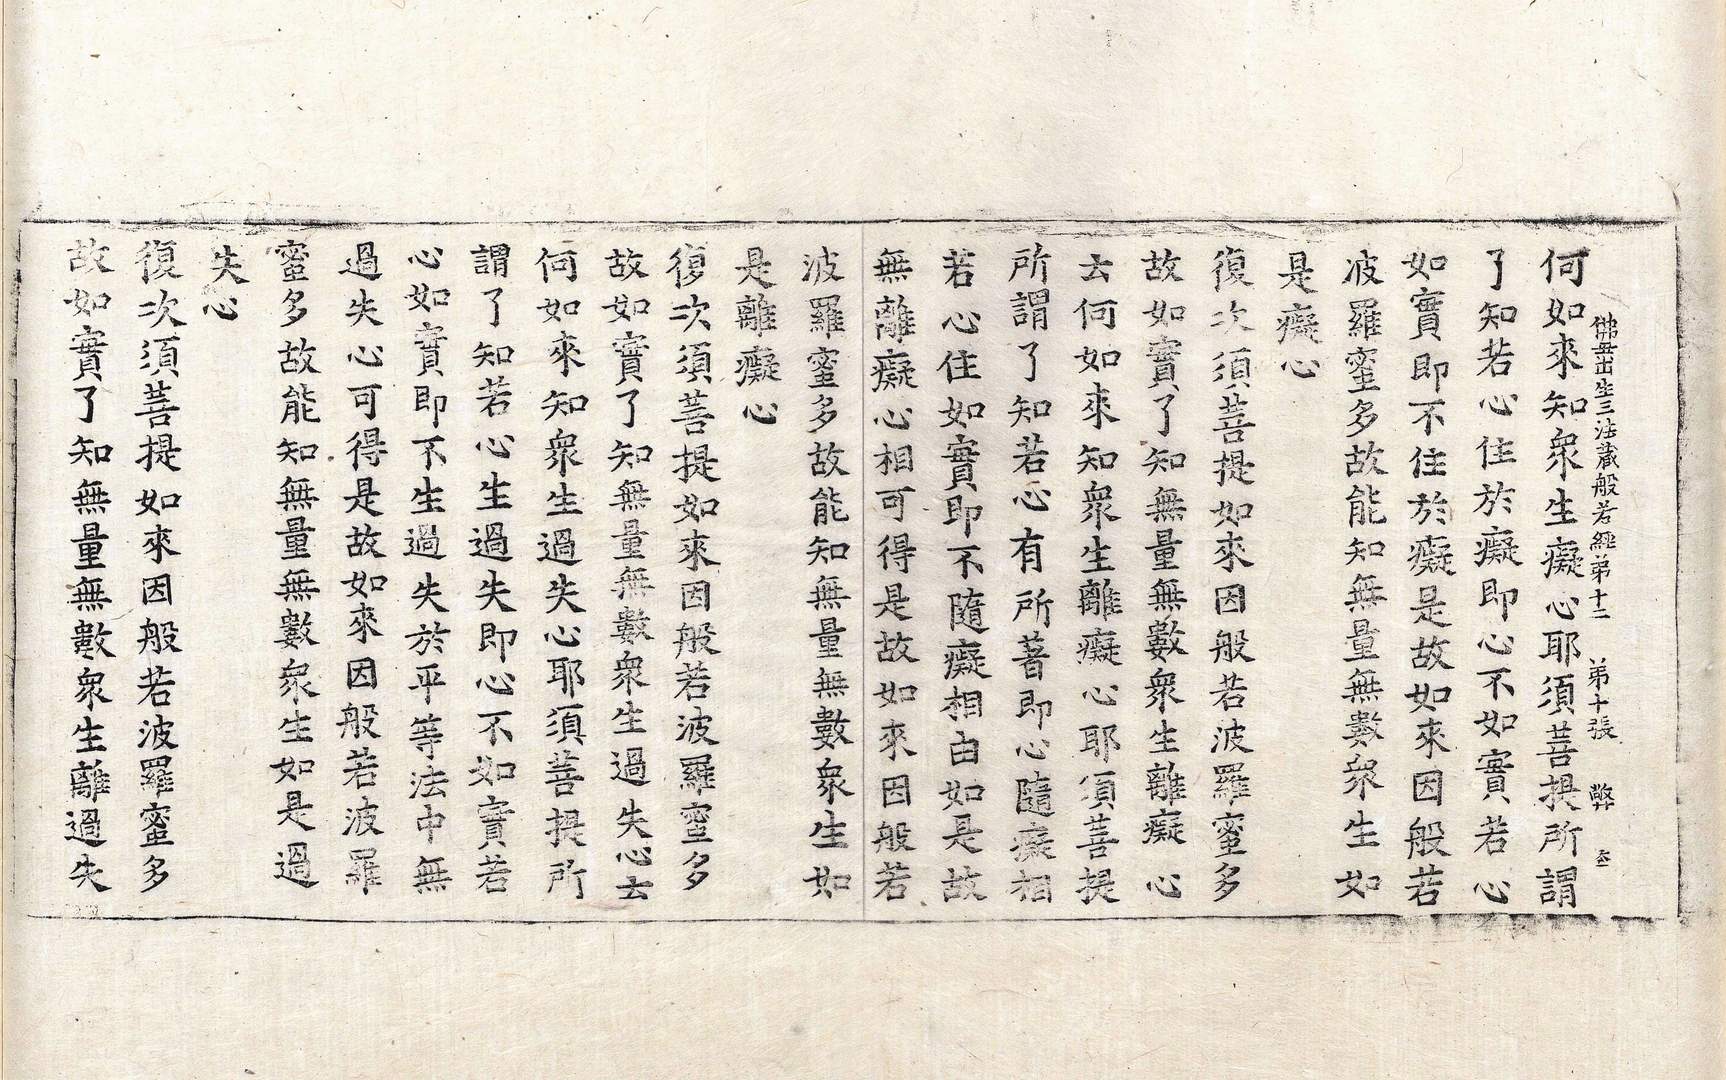 佛母出生三法藏般若經第十二 第十張 弊
何如來知衆生癡心耶須菩提所謂
了知若心住於癡即心不如實若心
如實即不住於癡是故如來因般若
波羅蜜多故能知無量無數衆生如
是癡心
復次須菩提如來因般若波羅蜜多
故如實了知無量無數衆生離癡心
云何如來知衆生離癡心耶須菩提
所謂了知若心有所著即心隨癡相
若心住如實即不隨癡相由如是故
無離癡心相可得是故如來因般若
波羅蜜多故能知無量無數衆生如
是離癡心
復次須菩提如來因般若波羅蜜多
故如實了知無量無數衆生過失心云
何如來知衆生過失心耶須菩提所
謂了知若心生過失即心不如實若
心如實即不生過失於平等法中無
過失心可得是故如來因般若波羅
蜜多故能知無量無數衆生如是過
失心
復次須菩提如來因般若波羅蜜多
故如實了知無量無數衆生離過失